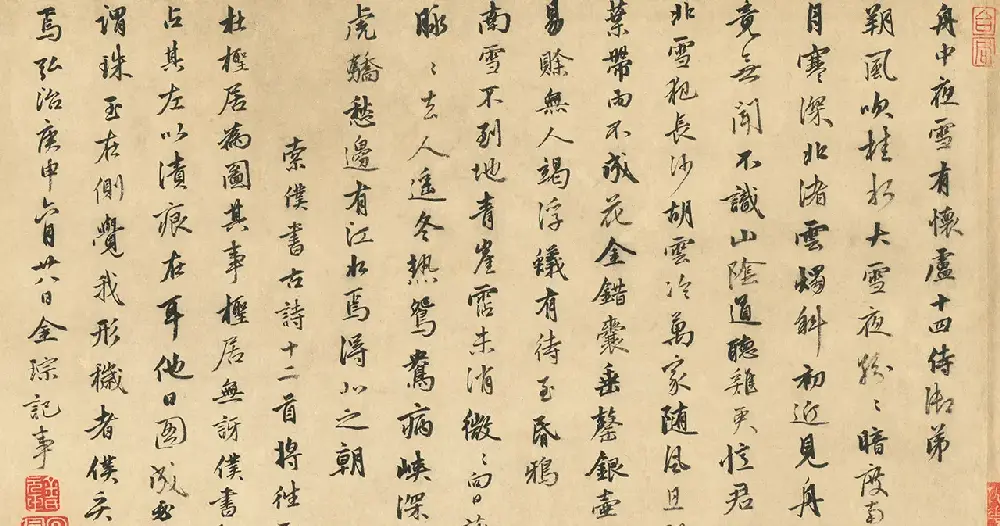 舟中夜雪有懷盧十四侍御弟
朔風吹桂水大雪夜紛〻暗度南
月寒深北渚雲燭斜初近見舟
竟無聞不識山陰道聽雞更憶君
北雪犯長沙胡雲冷萬家隨風且
葉帶雨不成花金錯囊垂罄銀壺
易賖無人竭浮蟻有待至昏鴉
南雪不到地青崖霑未消微〻向日
脉〻去人遥冬熱鴛鴦病峽深
虎驕愁邊有江水焉得北之朝
索僕書古詩十二首將徃
杜檉居為圖其事檉居無訝僕書
占其左以漬痕在耳他日圖成
謂珠玉在側覺我形穢者僕矣
焉弘治庚申六月廿八日金琮記事